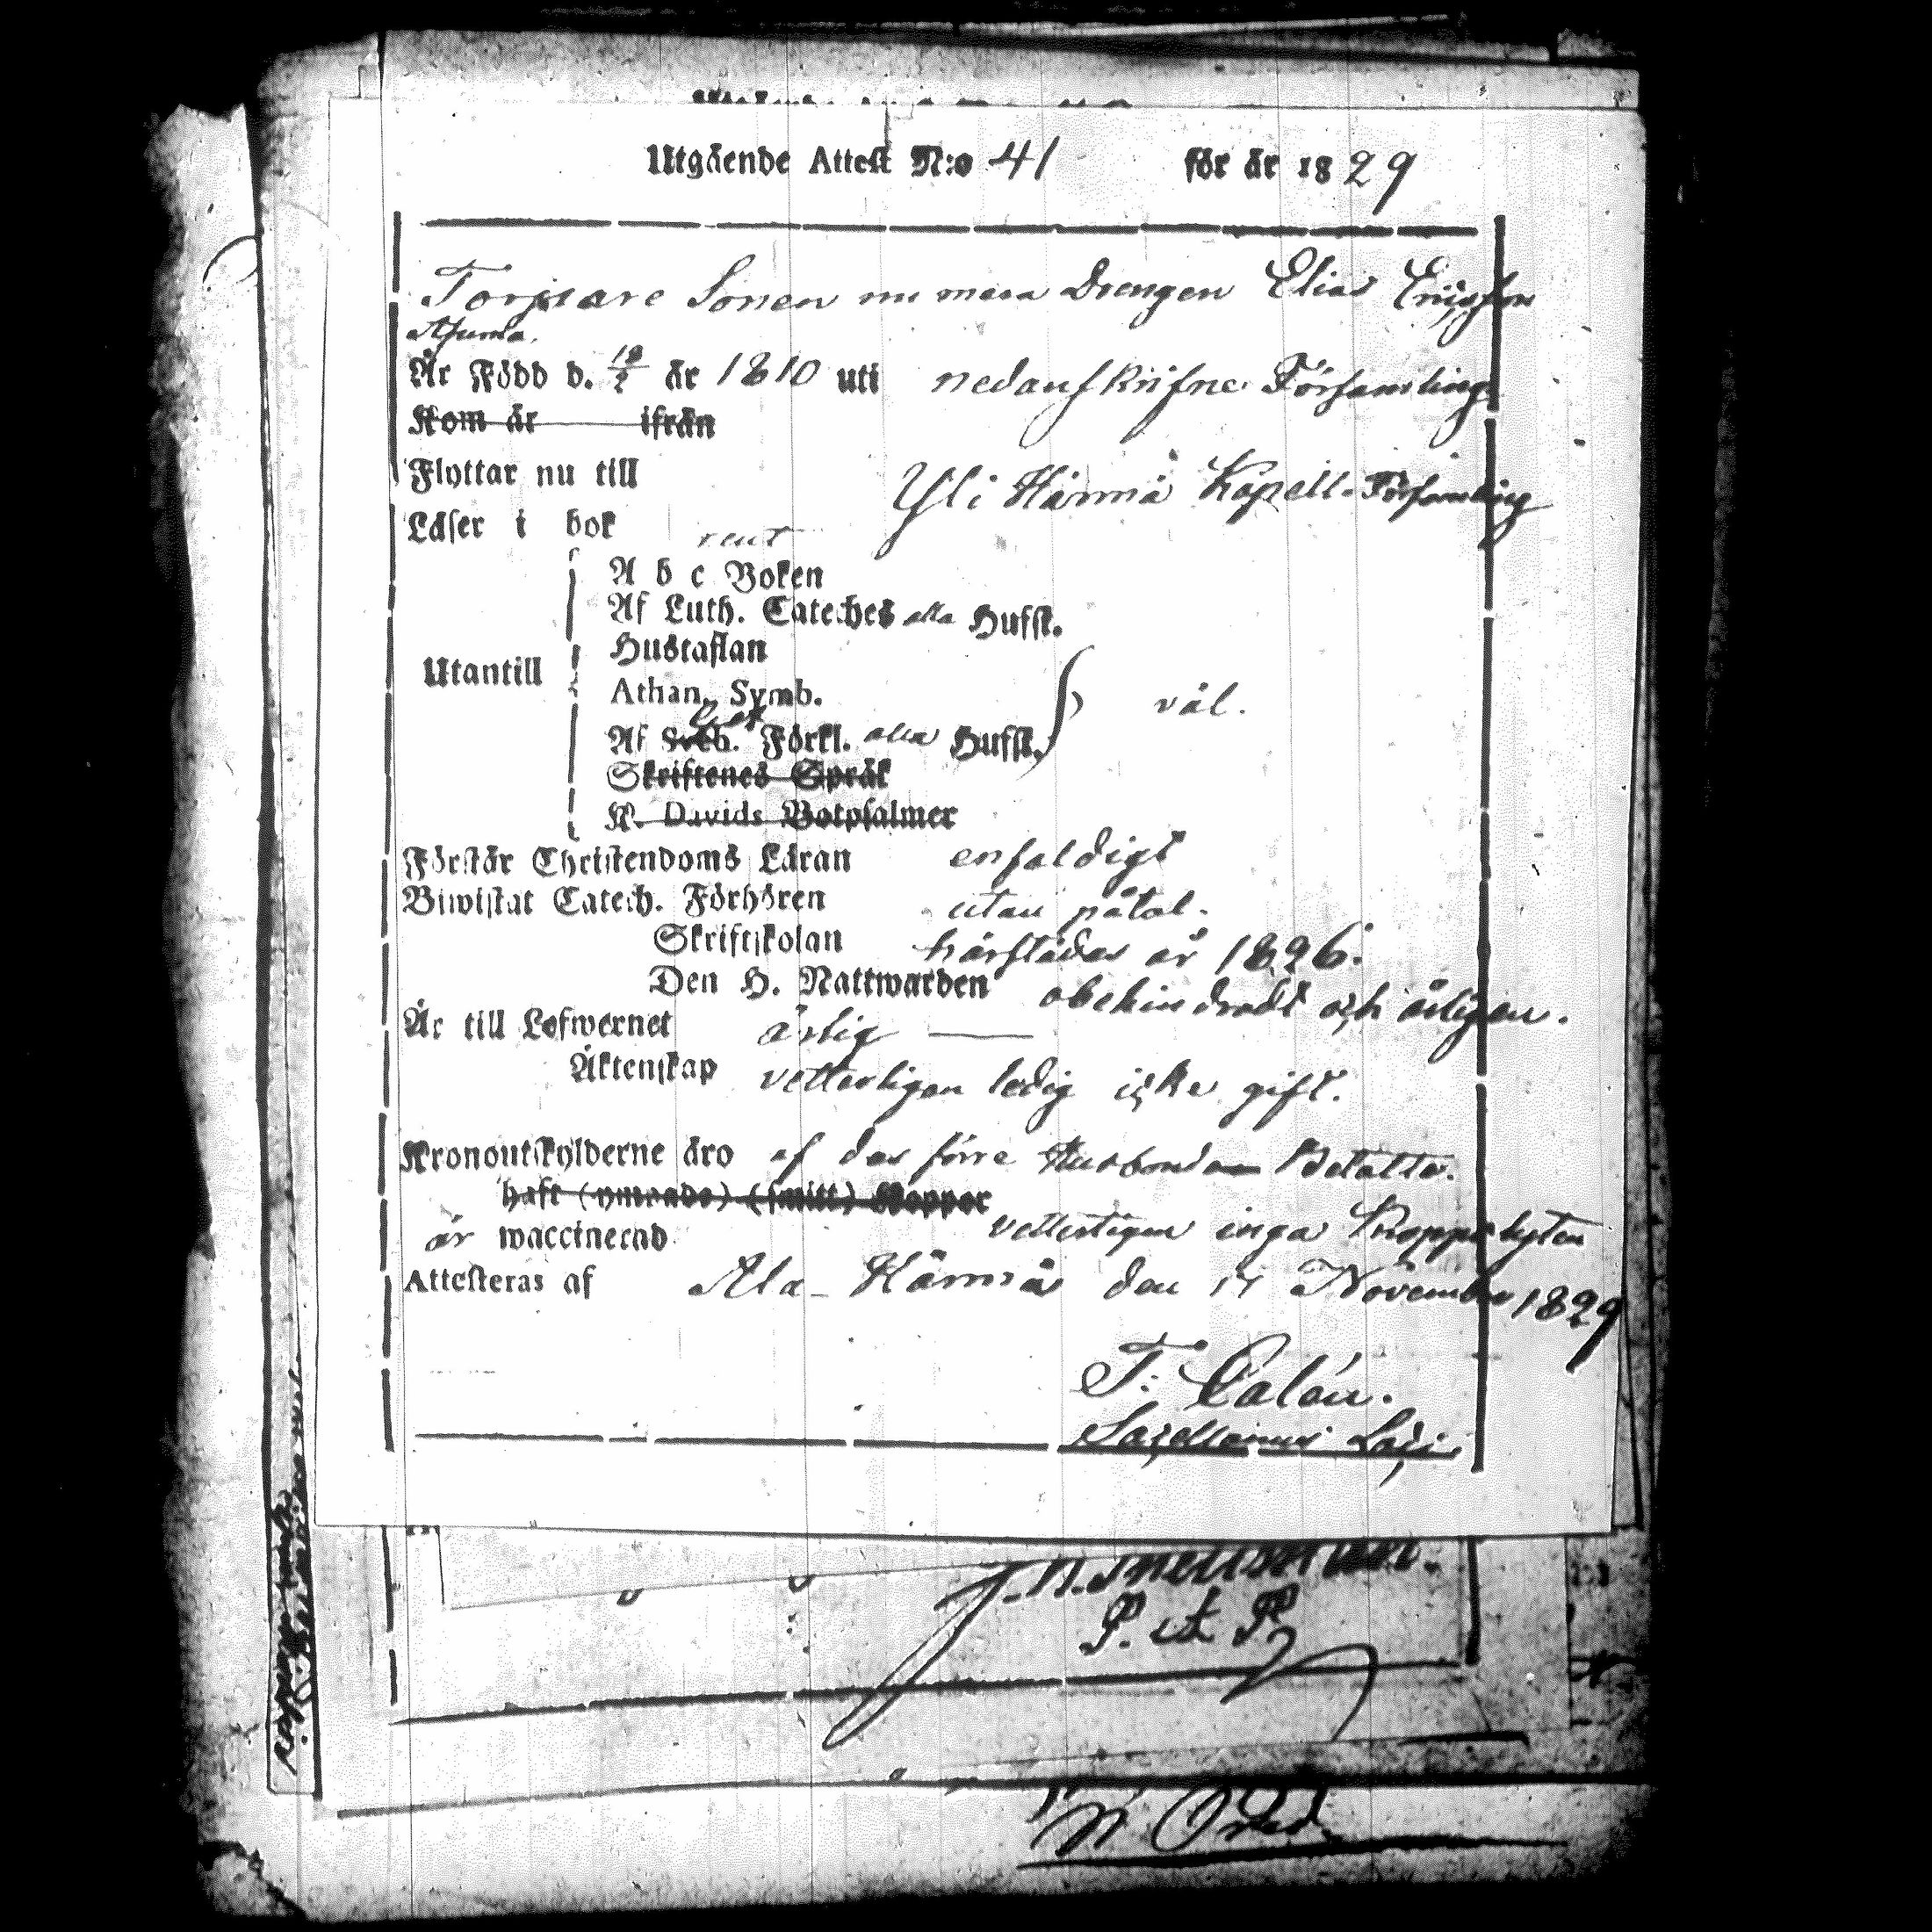 Utgående Attest N:o 41 för år 1829
Torpare Sonen nu mera Drengen Elias Ericsson
Är Född d. 18/2 år 1810 uti nedanskrifne Församling
Kom år ifrån
Flyttar nu till Yli Härmä Kapell-Församling
Läser i bok rent
A b c Boken
Af Luth. Cateches alla Hufst.
Hustaflan
Utantill
Athan. Symb. väl.
Af Förkl. alla Hufst.
Skriftenes Språk
K. Davids Botpsalmer
Förstår Christendoms Läran enfaldigt
Biwistat Catech. Förhören utan påtal.
Skriftskolan härstädes år 1826.
Den H. Nattwarden obehindradt och årligen.
Är till Lefwernet ärlig
Äktenskap vetterligen ledig icke gift.
Kronoutskylderne äro af des förre Husbonde Betalte.
haft (ymnade) (smitt) Koppor
är waccinerad vetterligen inga Kropps lyten
Attesteras af Ala-Härmä den 14 November 1829
Sacellanus Loci
P. A P